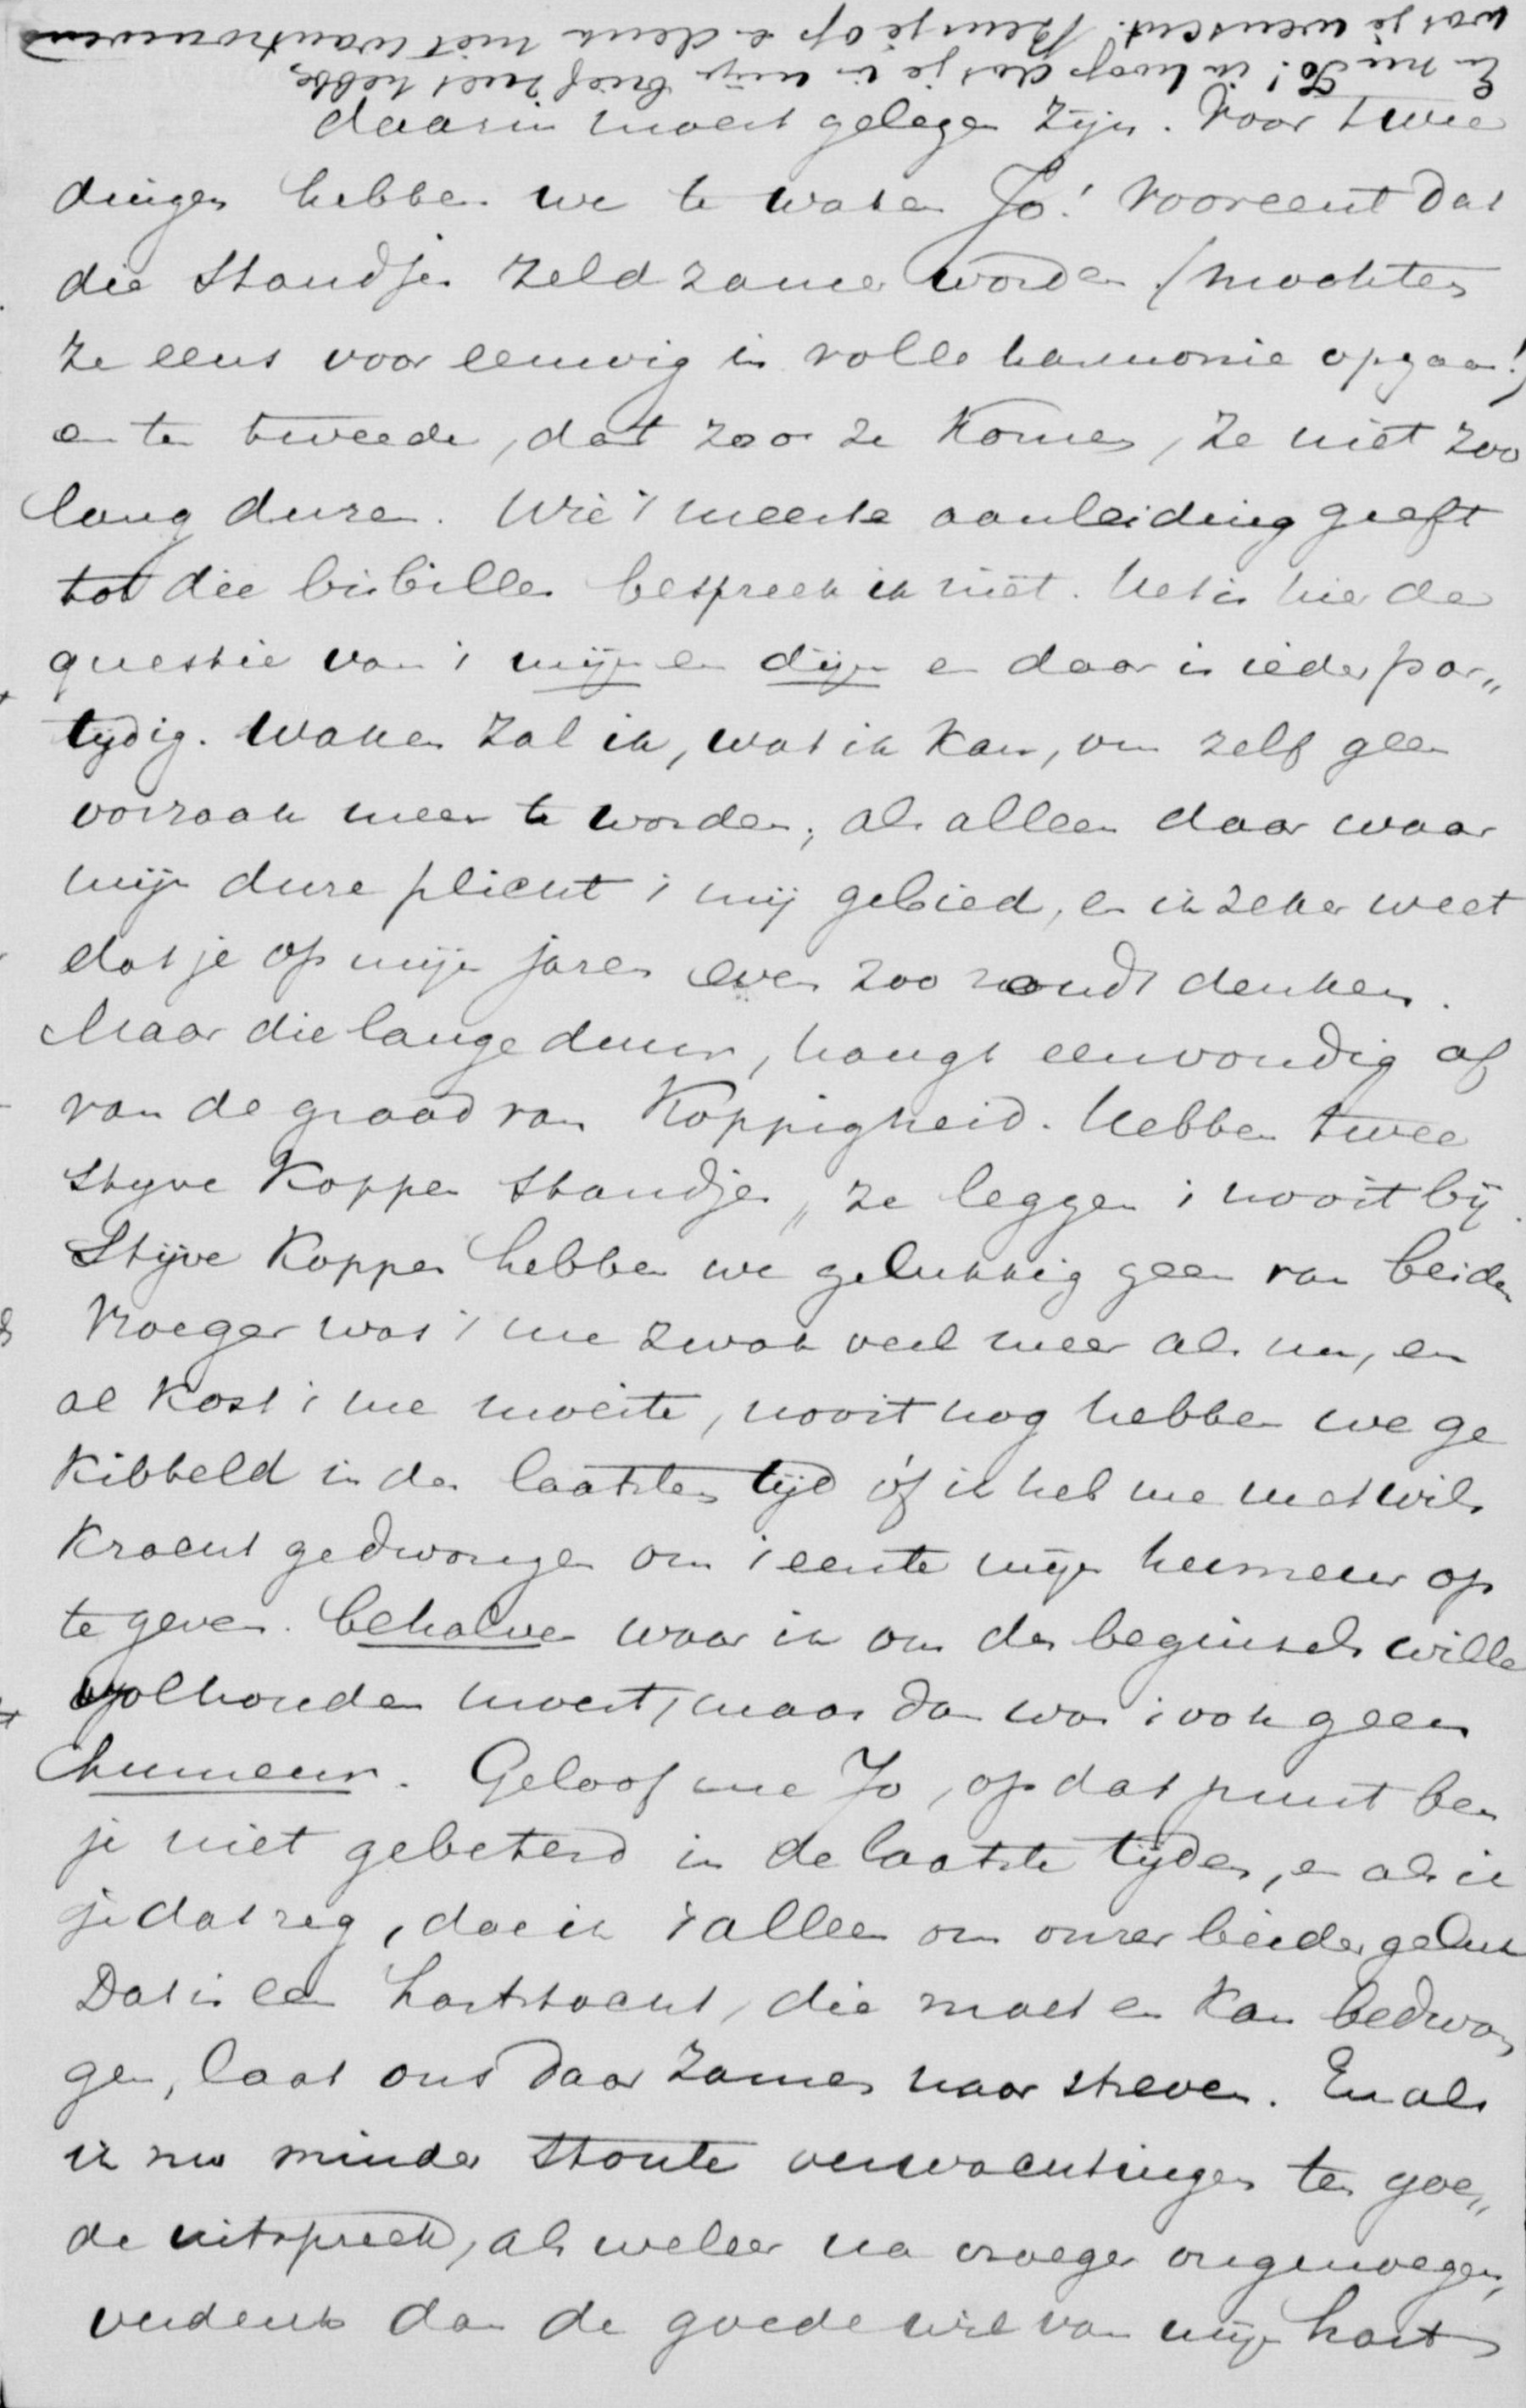 daarin moest gelegen zijn. Voor twee
dingen hebben we te waken Jo! Vooreerst dat
die standjes zeldzamer worden (mochten
ze eens voor eeuwig in volle harmonie opgaan!)
en ten tweede, dat zoo ze komen, ze niet zoo
lang duren. Wie 't meeste aanleiding geeft
tot die bisbilles bespreek ik niet. Het is hier de
questie van 't mijn en dijn en daar is ieder par„
tijdig. Waken zal ik, wat ik kan, om zelf geen
oorzaak meer te worden, als alleen daar waar
mijn dure plicht 't mij gebied, en ik zeker weet
dat je op mijn jaren even zoo zoudt denken.
Maar die lange duur, hangt eenvoudig af
van de graad van koppigheid. Hebben twee
styve koppen standjes, ze leggen 't nooit bij.
Stijve koppen hebben we gelukkig geen van beiden
Vroeger was 't me zwak veel meer als nu, en
al kost 't me moeite, nooit nog hebben we ge
kibbeld in den laatsten tijd óf ik heb me met wils
kracht gedwongen om 't eerste mijn humeur op
te geven. behalve waar ik om des beginsels wille
volhouden moest, maar dan was 't ook geen
humeur. Geloof me Jo, op dat punt ben
je niet gebeterd in de laatste tijden, en als ik
je dat zeg, doe ik 't alleen om onzer beider geluk
Dat is een hartstocht, die moet en kan bedwon
gen, laat ons daar zamen naar streven. En als
ik nu minder stoute verwachtingen ten goe„
de uitspreek, als weleer na vroeger ongenoegen,
verdenk dan de goede wil van mijn hart
En nu Jo! ik hoop dat je in mijn brief niet hebt,
wat je wenscht. Beur je op en denk niet wantrouwend